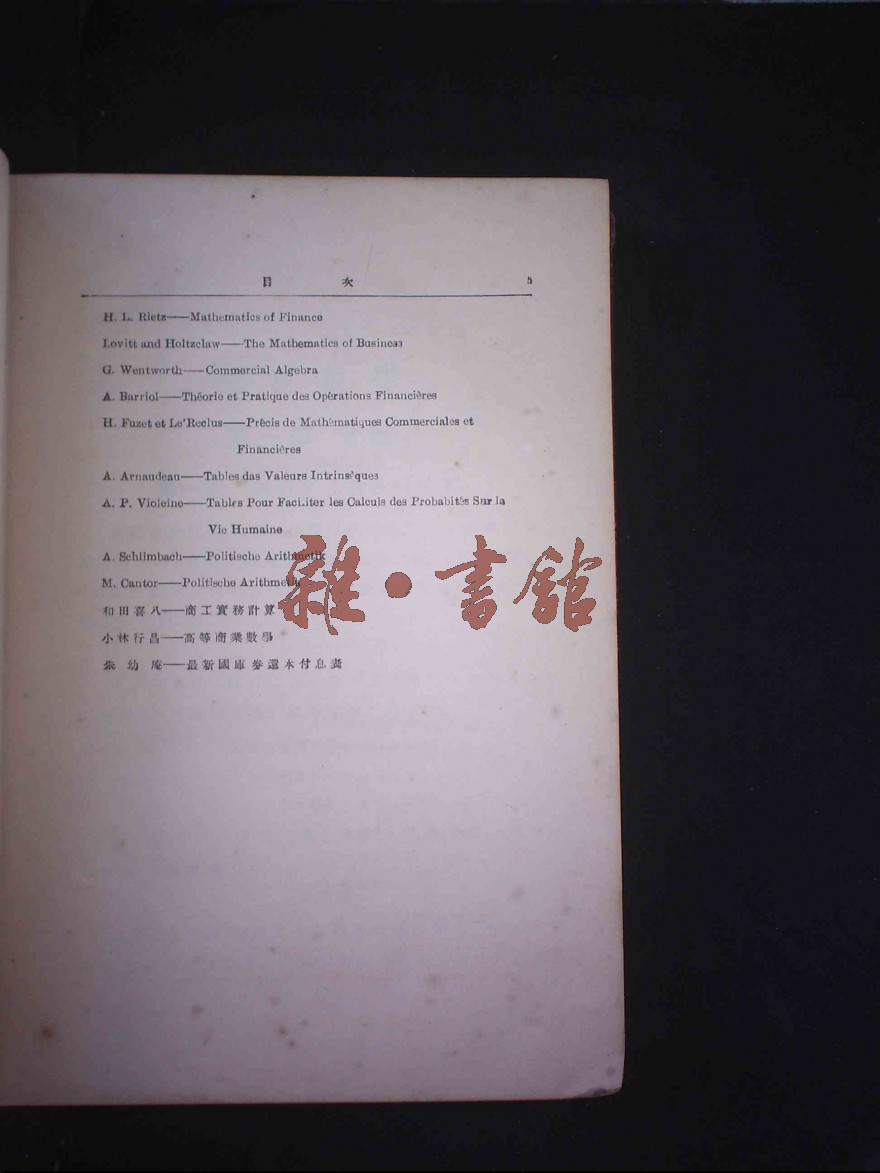 目 次 5
H. L. Rietz——Mathematics of Finance
Lovitt and Holtzclaw——The Mathematics of Business
G. Wentworth——Commercial Algebra
A. Barriol——Théorie et Pratique des Opérations Financières
H. Fuzet et Le'Reclus——Précis de Mathématiques Commerciales et
Financières
A. Arnaudeau——Tables das Valeurs Intrinsèques
A. P. Violeine——Tables Pour Faciliter les Calculs des Probabités Sur la
Vie Humaine
A. Schlimbach——Politische Arithmetik
M. Cantor——Politische Arithmetik
和田喜八——商工實務計算
小林行昌——高等商業數學
朱幼庵——最新國庫券還本付息表
雜·書館